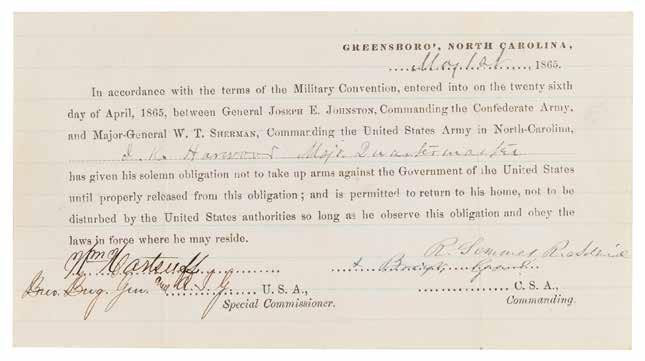 GREENSBORO', NORTH CAROLINA,
May 1st, 1865.
In accordance with the terms of the Military Convention, entered into on the twenty sixth
day of April, 1865, between General JOSEPH E. JOHNSTON, Commanding the Confederate Army,
and Major-General W. T. SHERMAN, Commanding the United States Army in North-Carolina,
Harwood Maj. Quartermaster
has given his solemn obligation not to take up arms against the Government of the United States
until properly released from this obligation; and is permitted to return to his home, not to be
disturbed by the United States authorities so long as he observe this obligation and obey the
laws in force where he may reside.
Wm Hartsuff
Brev. Brig. Gen. U. S. A.,
Special Commissioner.
C. S. A.,
Commanding.